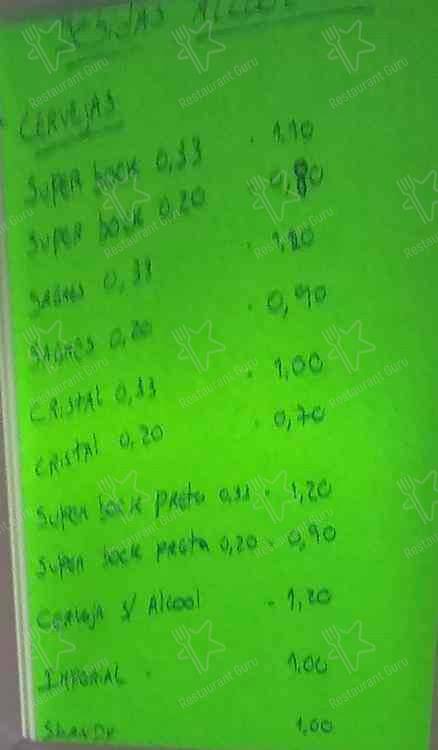 ALCOOL
CERVEJAS
SUPER BOCK 0,33 . 1,10
SUPER BOCK 0.20 . 0,80
SAGRES 0,33 .
SAGRES 0,20 . 0,90
CRISTAL 0,33 . 1,00
CRISTAL 0,20 . 0,70
SUPER BOCK PRETA 0,33 . 1,20
SUPER BOCK PRETA 0,20 . 0,90
CERVEJA S/ Alcool . 1,20
IMPERIAL . 1,00
SHANDY 1,00
Restaurant Guru